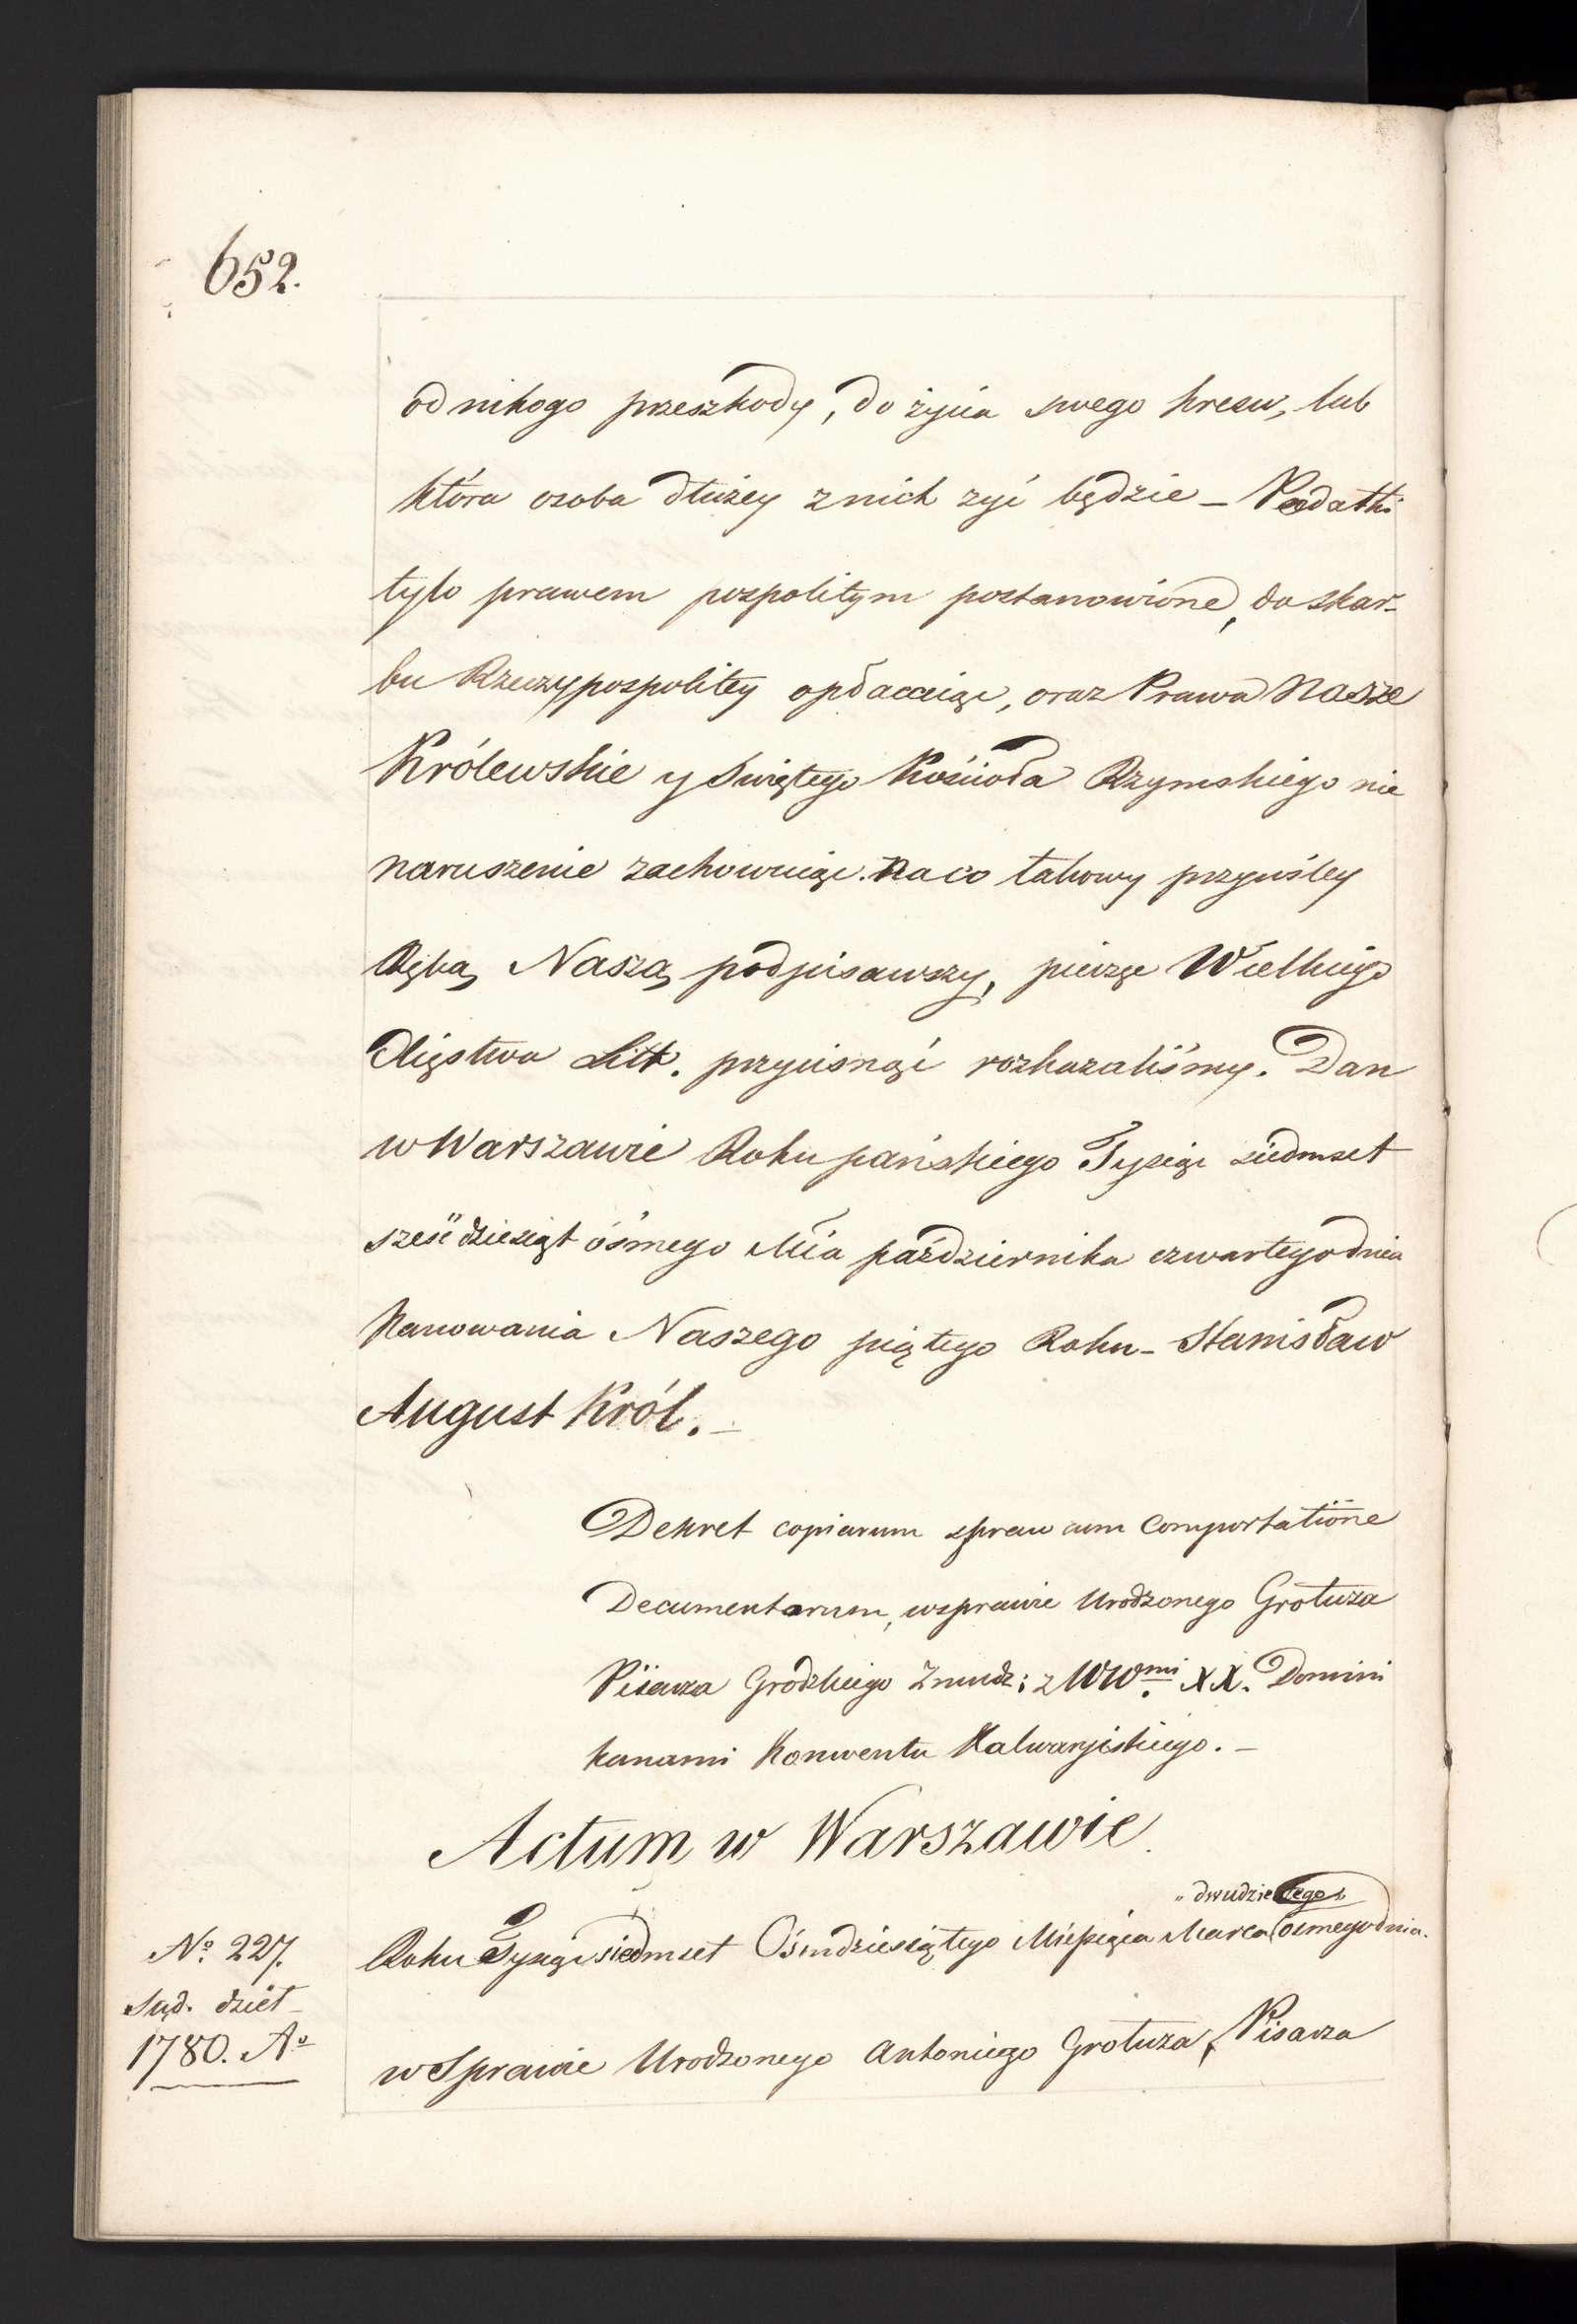 652.
od nikogo przeszkody, do życia swego kresu, lub
która osoba dłużey z nich żyć będzie – Podatki
tylo prawem pospolitym postanowione, do skar-
bu Rzeczypospolitey opłacaiąc, oraz Prawa Nasze
Królewskie y Swiętego Kościoła Rzymskiego nie
naruszenie zachowuiąc. Na co takowy przywiley
Ręką Naszą podpisawszy, pieczęc Wielkiego
Xięstwa Litt. przycisnąć rozkazaliśmy. Dan
w Warszawie Roku pańskiego Tysiąc siedmset
sześćdziesiąt ósmego Mca października czwartego dnia
Panowania Naszego piątego Roku – Stanisław
August Król. –
Dekret copiarum spraw cum comportatione
Documentorum, wsprawie Urodzonego Grotuza
Pisarza Grodzkiego Zmudz: z WW mi XX. Domini
kanami Konwentu Kalwaryiskiego. –
Actum w Warszawie.
„ dwudziestego
Roku Tysiąc siedmset Ośmdziesiątego Miesiąca Marca osmego dnia.
No 227.
Sąd. dzieł
1780. Ao
w Sprawie Urodzonego Antoniego Grotuza, Pisarza